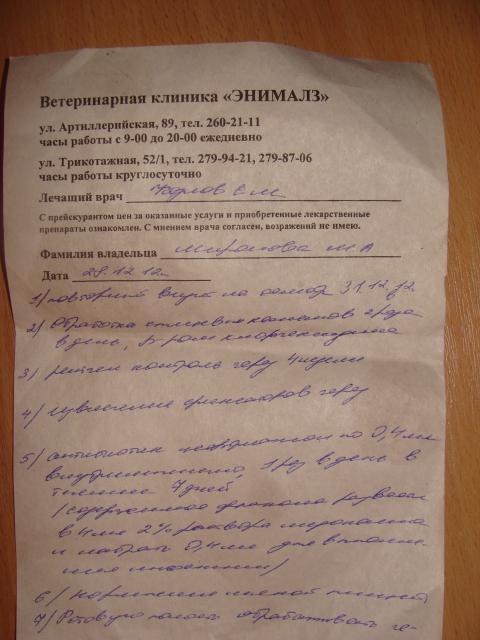 Ветеринарная клиника «ЭНИМАЛЗ»
ул. Артиллерийская, 89, тел. 260-21-11
часы работы с 9-00 до 20-00 ежедневно
ул. Трикотажная, 52/1, тел. 279-94-21, 279-87-06
часы работы круглосуточно
Лечащий врач Козлов Е М
С прейскурантом цен за оказанные услуги и приобретенные лекарственные
препараты ознакомлен. С мнением врача согласен, возражений не имею.
Фамилия владельца Миронова М А
Дата 29.12.12
1/ повторный на осмотр 31.12.12.
2/ Обработка 2 раза
в день, р-ром хлоргексидина
3/ рентген контроль через 4 недели
4/ фиксаторов через
5/ антибиотик цефтриаксон по 0,4 мл
внутримышечно, 1 раз в день в
течение 7 дней
/содержимое флакона развести
в 4 мл 2% раствора
и набрать 0,4 мл для выполне-
ния инъекции/
6/ Кормление мягкой пищей
7/ Ротовую полость обрабатывать